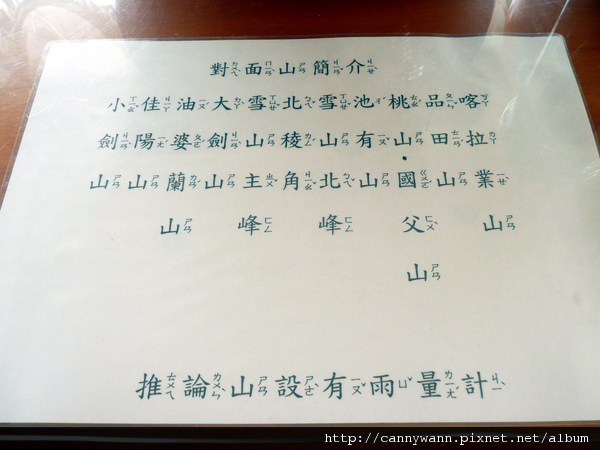 對面山簡介
小劍山
佳陽山
油婆蘭山
大劍山
雪山主峰
北稜角
雪山北峰
池有山
桃山•國父山
品田山
喀拉業山
推論山設有雨量計
http://cannywann.pixnet.net/album